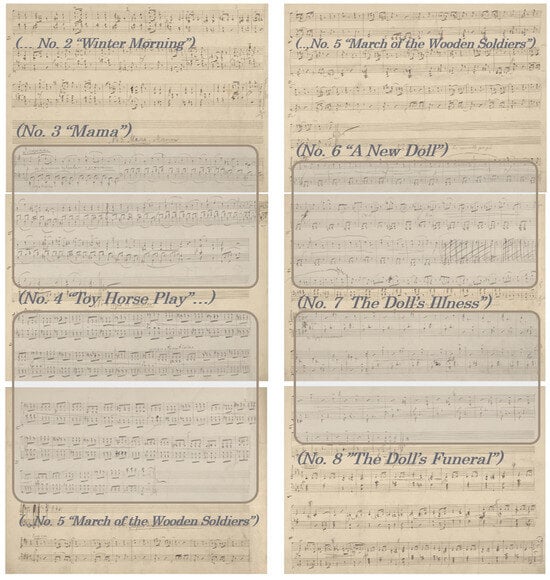 (... No. 2 “Winter Morning”)
(No. 3 “Mama”)
(No. 4 “Toy Horse Play”...)
(... No. 5 “March of the Wooden Soldiers”)
(...No. 5 “March of the Wooden Soldiers”)
(No. 6 “A New Doll”)
(No. 7 The Doll’s Illness”)
(No. 8 ”The Doll’s Funeral”)